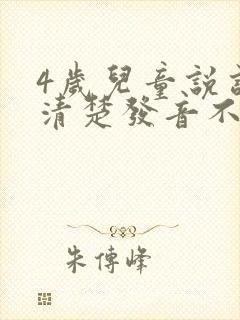 4歲兒童說
清楚發音不
朱傳峰